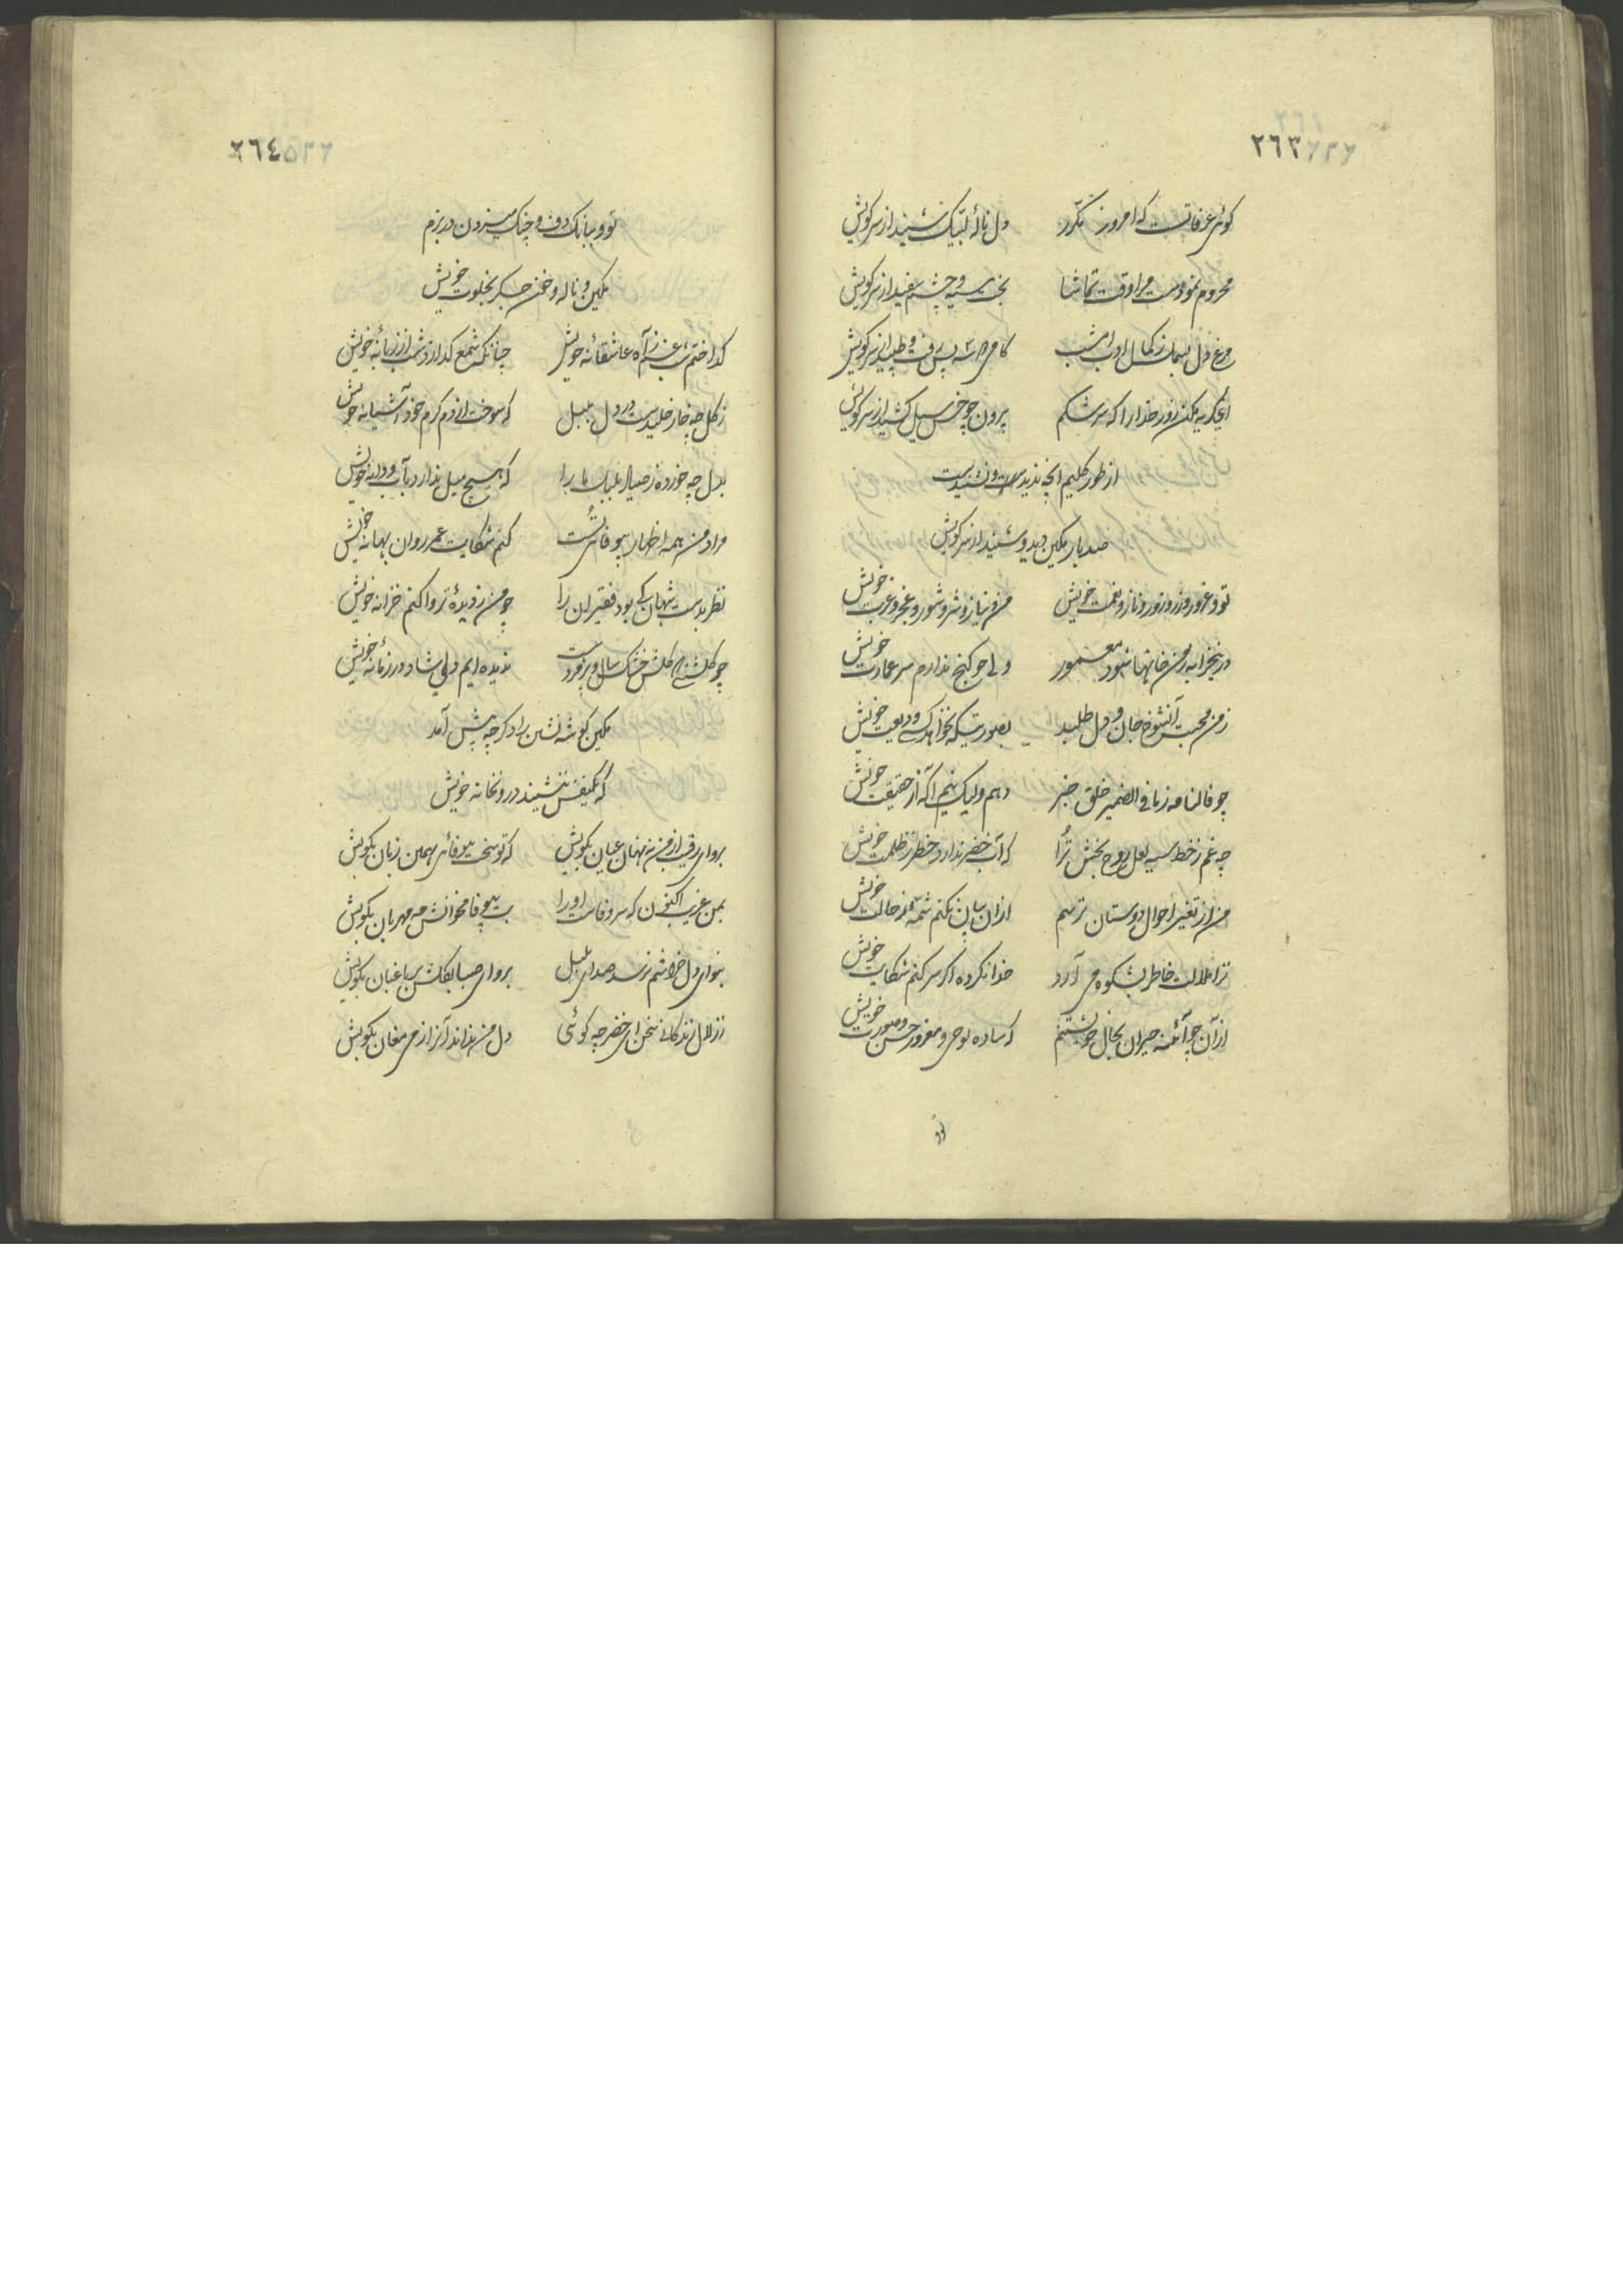 ٢٦٣
کوئی عرفاتست که امروز مکرر دل نالهٔ لبیک شنید از سر کویش
محروم نمودست مرا وقت تماشا بخت سیه و چشم سفید از سر کویش
مرغ دل بسمل ز کمال ادب امشب کامی دو سه پس رفت و طپید از سر کویش
ای گریه مکن زور خدا را که سرشکم بیرون چو خس سیل کشید از سر کویش
از طور کلیم انچه ندیدست و نشنیدست
صد بار مکین دید و شنید از سر کویش
تو و غرور و زر و زور و ناز و نعمت خویش من و نیاز و شر و شور و عجز و غربت خویش
درین خرابه ز من خانها شود معمور ولی چو کنج ندارم سر عمارت خویش
ز من محبت آنشوخ جان و دل طلبید بصورتیکه بخواهد کسی ودیعت خویش
چو فالنامه ز ما فی الضمیر خلق خبر دهم ولیک نیم آگه از حقیقت خویش
چه غم ز خط سیه لعل روح بخش ترا که آب خضر ندارد خطر ز ظلمت خویش
من از تغیر احوال دوستان ترسم ازان بیان نکنم شمهٔ ز حالت خویش
ترا ملالت خاطر بشکوه می آرد خدا نکرده اگر سر کنم شکایت خویش
از آن چو آئنه حیران بحال خویشتنم که ساده لوحی و مغرور حسن و صورت خویش
تو و
٢٦٤
تو و ببانک دف و چنک میزدن در بزم
مکین و ناله و خون جگر بخلوت خویش
گداختم شب غم ز آه عاشقانهٔ خویش چنانکه شمع گدازد شب از زبانهٔ خویش
ز گل چه خار خلیدست در دل بلبل که سوخت از دم گرم خود آشیانهٔ خویش
بدل چه خورده ز صیاد بلبلان ما را که هیچ میل ندارد بآب و دانهٔ خویش
مراد من همه اظهار بیوفائی تست کنم شکایت عمر روان بهانهٔ خویش
نظر بدست شهان کی بود فقیران را چو من ز دیده تر وا کنم خزانهٔ خویش
چو گلشنی گلش خشک سال و پر وردست ندیده ایم دلی شاد در زمانهٔ خویش
مکین گوشه نشین را دگر چه پیش آمد
که یکنفس ننشیند درونخانه خویش
برو ای رقیب از من نهان عیان بگویش که تو سخت بیوفائی بهمین زبان بگویش
بمن غریب اکنون که سر وفاست او را بت بیوفا مخوانش مه مهربان بگویش
بنوای دل خراشم نرسد صدای بلبل برو ای صبا بگلشن بر باغبان بگویش
ز زلال زندگانی سخن ای خضر چه گوئی دل من نداند آنرا ز می مغان بگویش